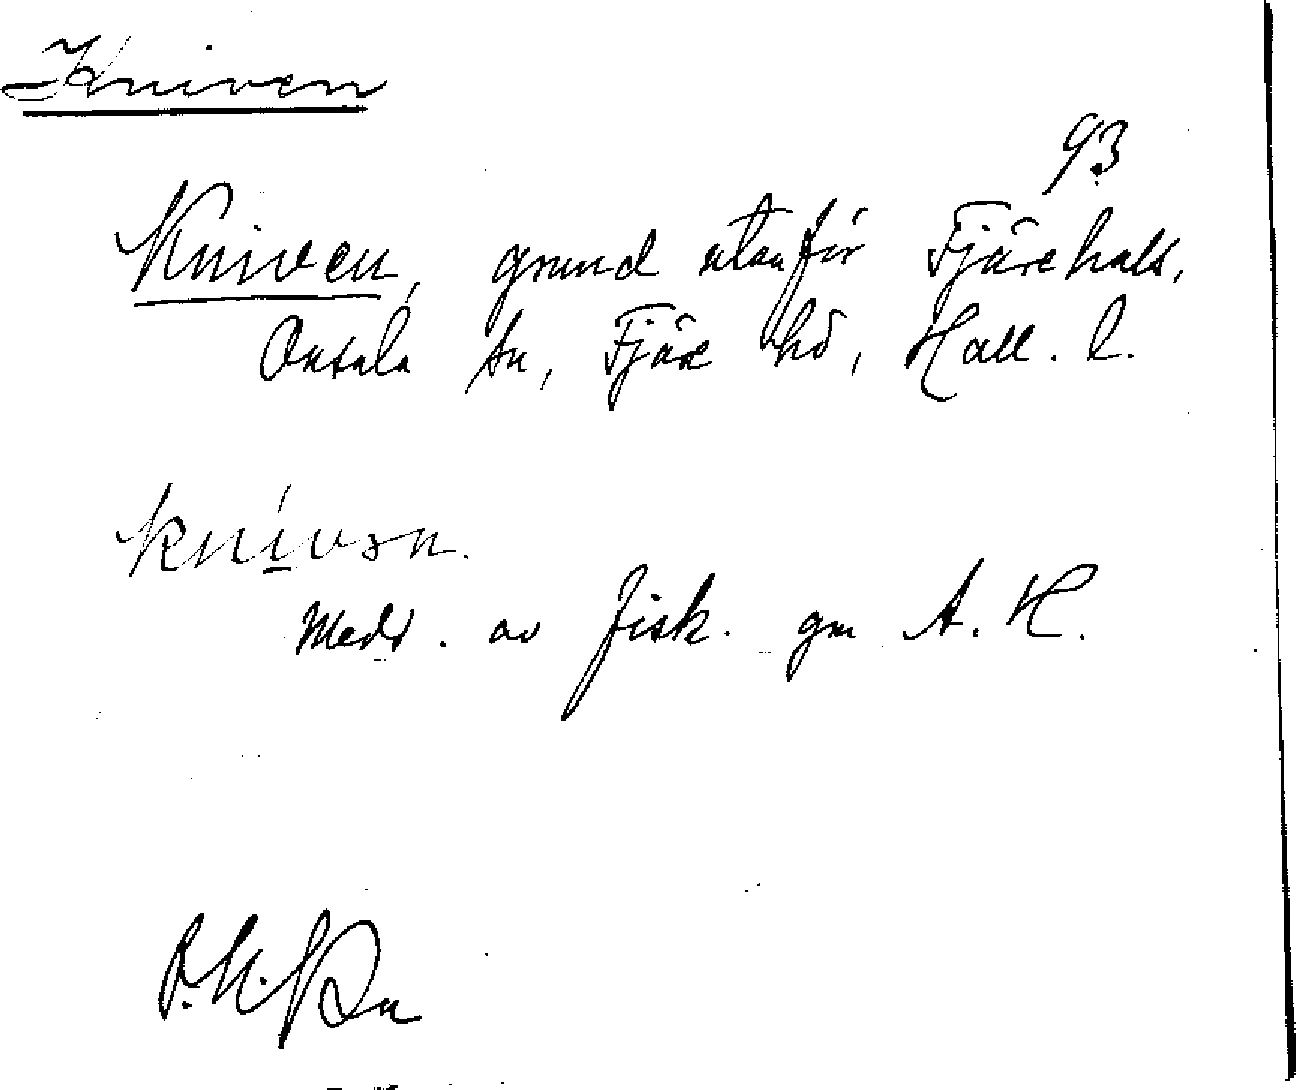 Kniven
93
Kniven, grund utanför Fjärehals,
Onsala sn, Fjäre hd, Hall. l.
knivən.
Medd. av fisk. gm A. K.